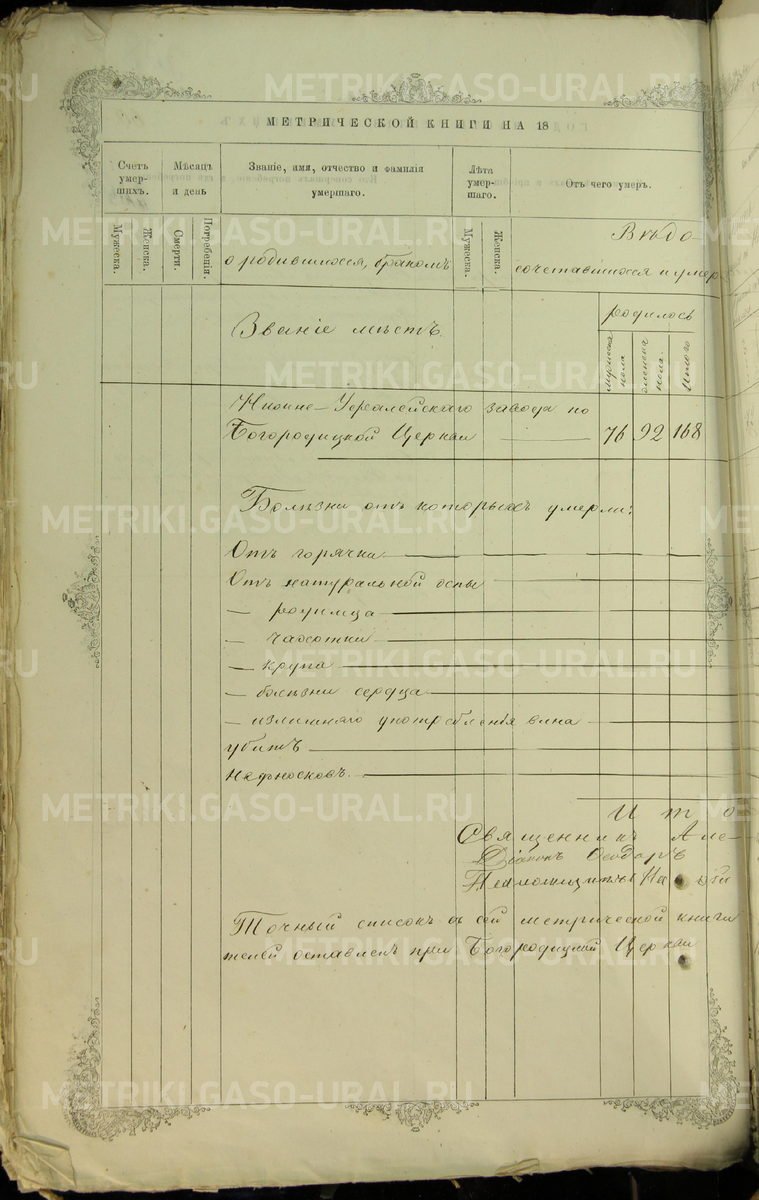 METRIKI.GASO-URAL.RU
МЕТРИЧЕСКОЙ КНИГИ НА 18
Счетъ умер-шихъ.
Мѣсяцъ и день
Званіе, имя, отчество и фамилія умершаго.
Лѣта умер-шаго.
Отъ чего умеръ.
Мужеска.
Женска.
Смерти.
Погребенія.
Мужеска.
Женска.
Вѣдо-
о родившихся, бракомъ сочетавшихся и умер
родилось
Званіе мѣстъ.
мужеска пола
женска пола.
Итого
Нижне-Уфалейскаго завода по
Богородицкой Церкви 76 92 168
Болѣзни отъ которыхъ умерли:
Отъ горячки
Отъ натуральной оспы
— родимца
— чахотки
— крупа
— болѣзни сердца
— излишняго употребленія вина
убитъ
Ито
Священникъ Але-
Діаконъ Ѳеодоръ
Точный списокъ съ сей метрической книги
оставленъ при Богородицкой Церкви